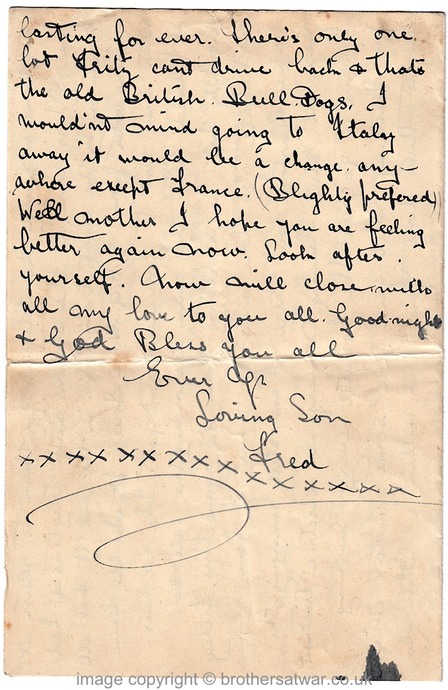 lasting for ever. There's only one
lot Fritz cant drive back & thats
the old British. Bull Dogs. I
would'nt mind going to Italy
away it would be a change. any-
where except France. (Blighty prefered)
Well mother I hope you are feeling
better again now. Look after.
yourself. Now will close with
all my love to you all. Goodnight
& God Bless you all
Ever Yr
Loving Son
Fred
xxxx xx xxxx
xxxxxxx
image copyright © brothersatwar.co.uk